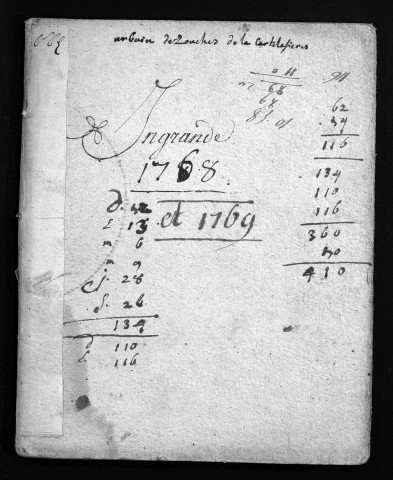 urbain de Zouches de la Cartelasieres
Ingrande
1768.
et 1769
d. 52
L 13
m 6
m 9
j. 28
S. 26
134
d 110
L. 116
62
54
116
134
110
116
360
50
410